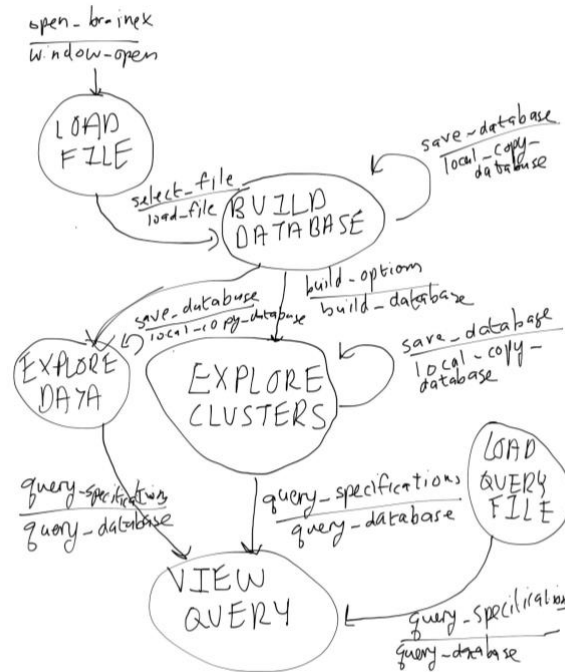 open_brainex
window-open
LOAD
FILE
save-database
local-copy-
database
select_file
load_file
BUILD
DATABASE
build-options
build-database
save_database
local-copy-database
save_database
local-copy-
database
EXPLORE
DATA
EXPLORE
CLUSTERS
LOAD
QUERY
FILE
query-specifications
query-database
query_specifications
query-database
VIEW
QUERY
query_specification
query-database